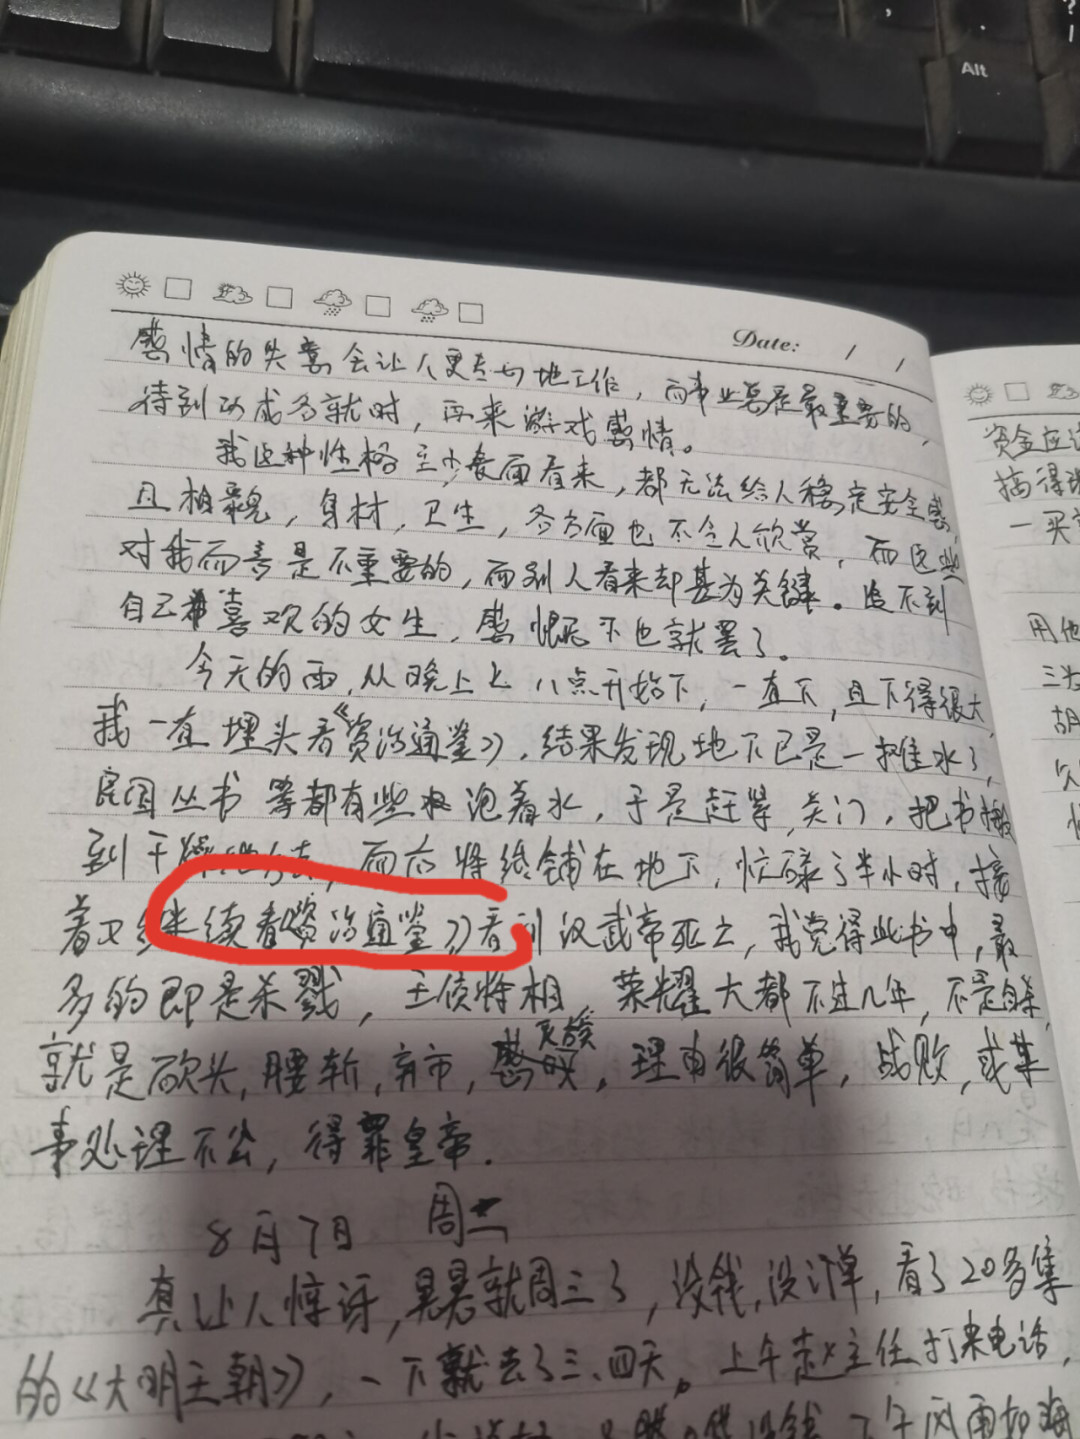 Alt
Date: / /
感情的失意会让人更专心地工作，而事业总是最重要的，
待到功成名就时，再来游戏感情。
我这种性格至少表面看来，都无法给人稳定安全感，
且相貌，身材，卫生，各方面也不令人欣赏，而这些
对我而言是不重要的，而别人看来却甚为关键。追不到
自己喜欢的女生，感慨几下也就罢了。
今天的雨，从晚上七八点开始下，一直下，且下得很大，
我一直埋头看《资治通鉴》，结果发现地下已是一摊水了，
民国丛书等都有些被泡着水，于是赶紧关门，把书搬
到干燥地方去，而后将纸铺在地下，忙碌了半小时，接
着又继续看《资治通鉴》看到汉武帝死亡，我觉得此书中，最
多的即是杀戮，王侯将相，荣耀大都不过几年，不是自杀，
就是砍头，腰斩，弃市，灭族，理由很简单，战败，或某
事处理不公，得罪皇帝.
8月7日 周二
真让人惊讶，晃晃就周三了，没钱，没订单，看了20多集
的《大明王朝》，一下就去了三、四天。上午赵主任打来电话，
下午风雨如海
资金应
搞得
一买
用他
三
胡